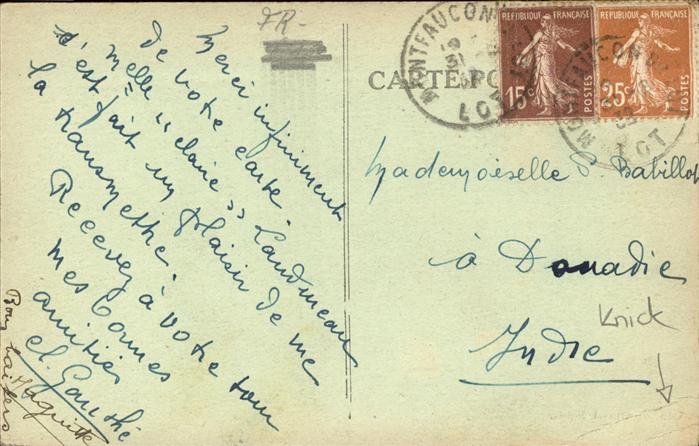 FR-
Merci infiniment
de votre carte.
Melle "Claire" Landureau
s'est fait un plaisir de me
la transmettre.
Recevez à votre tour
mes bonnes
amitiés
Bons baisers
CARTE PO
MONTFAUCON DU
LOT
REPUBLIQUE FRANÇAISE
15c
POSTES
REPUBLIQUE FRANÇAISE
25c
POSTES
LOT
Mademoiselle P. Babillot
à Douadic
Indre
Knick